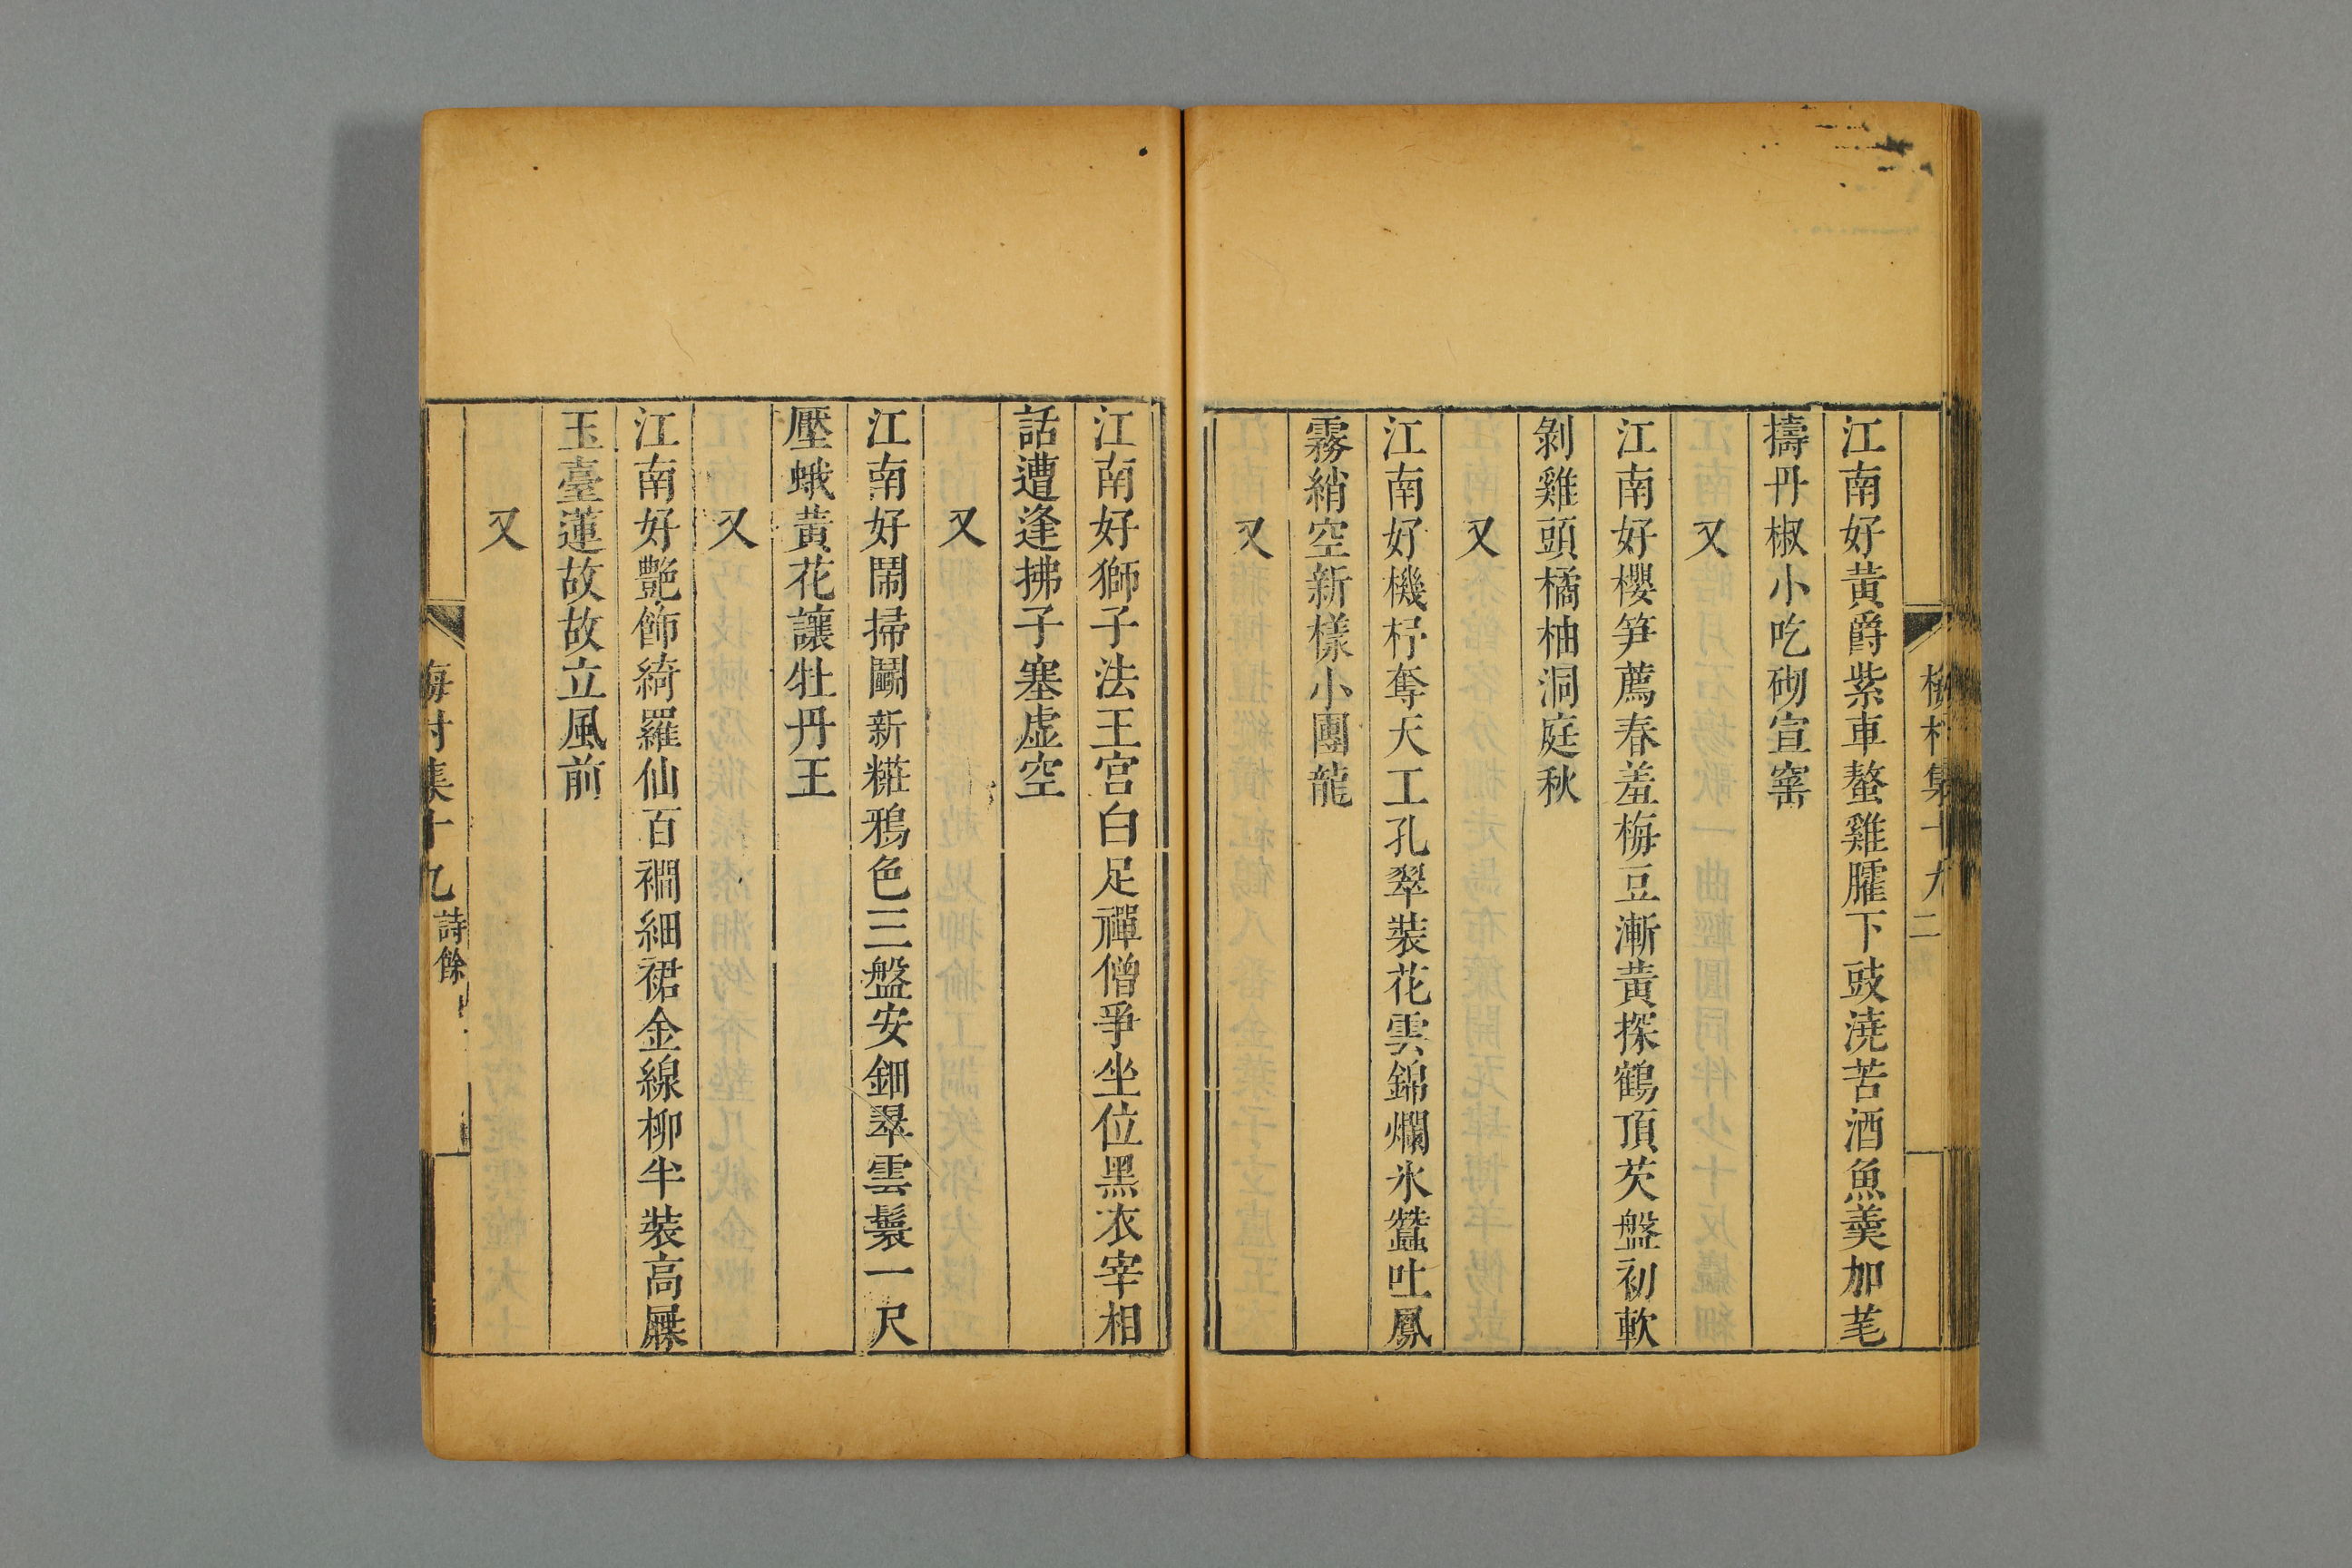 梅村集十九
二
江南好黃爵紫車螯雞臛下豉澆苦酒魚羹加芼
擣丹椒小吃砌宣窰
又
江南好櫻笋薦春羞梅豆漸黃探鶴頂芡盤初軟
剝雞頭橘柚洞庭秋
又
江南好機杼奪天工孔翠裝花雲錦爛氷蠶吐鳳
霧綃空新樣小團龍
又
江南好獅子法王宮白足禪僧爭坐位黑衣宰相
話遭逢拂子塞虛空
又
江南好鬧掃鬬新糚鴉色三盤安鈿翠雲鬟一尺
壓蛾黃花讓牡丹王
又
江南好艷飾綺羅仙百襇細裙金線柳半裝高屧
玉臺蓮故故立風前
又
梅村集十九
詩餘